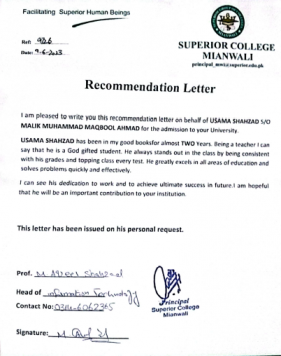 Facilitating Superior Human Beings
Ref: 926
Date: 9-6-2023
SUPERIOR COLLEGE
MIANWALI
principal_mwi@superior.edu.pk
Recommendation Letter
I am pleased to write you this recommendation letter on behalf of USAMA SHAHZAD S/O
MALIK MUHAMMAD MAQBOOL AHMAD for the admission to your University.
USAMA SHAHZAD has been in my good booksfor almost TWO Years. Being a teacher I can
say that he is a God gifted student. He always stands out in the class by being consistent
with his grades and topping class every test. He greatly excels in all areas of education and
solves problems quickly and effectively.
I can see his dedication to work and to achieve ultimate success in future.I am hopeful
that he will be an important contribution to your institution.
This letter has been issued on his personal request.
Prof. M Shahzad
Head of Information Technology
Contact No:
Signature:
Principal
Superior College
Mianwali